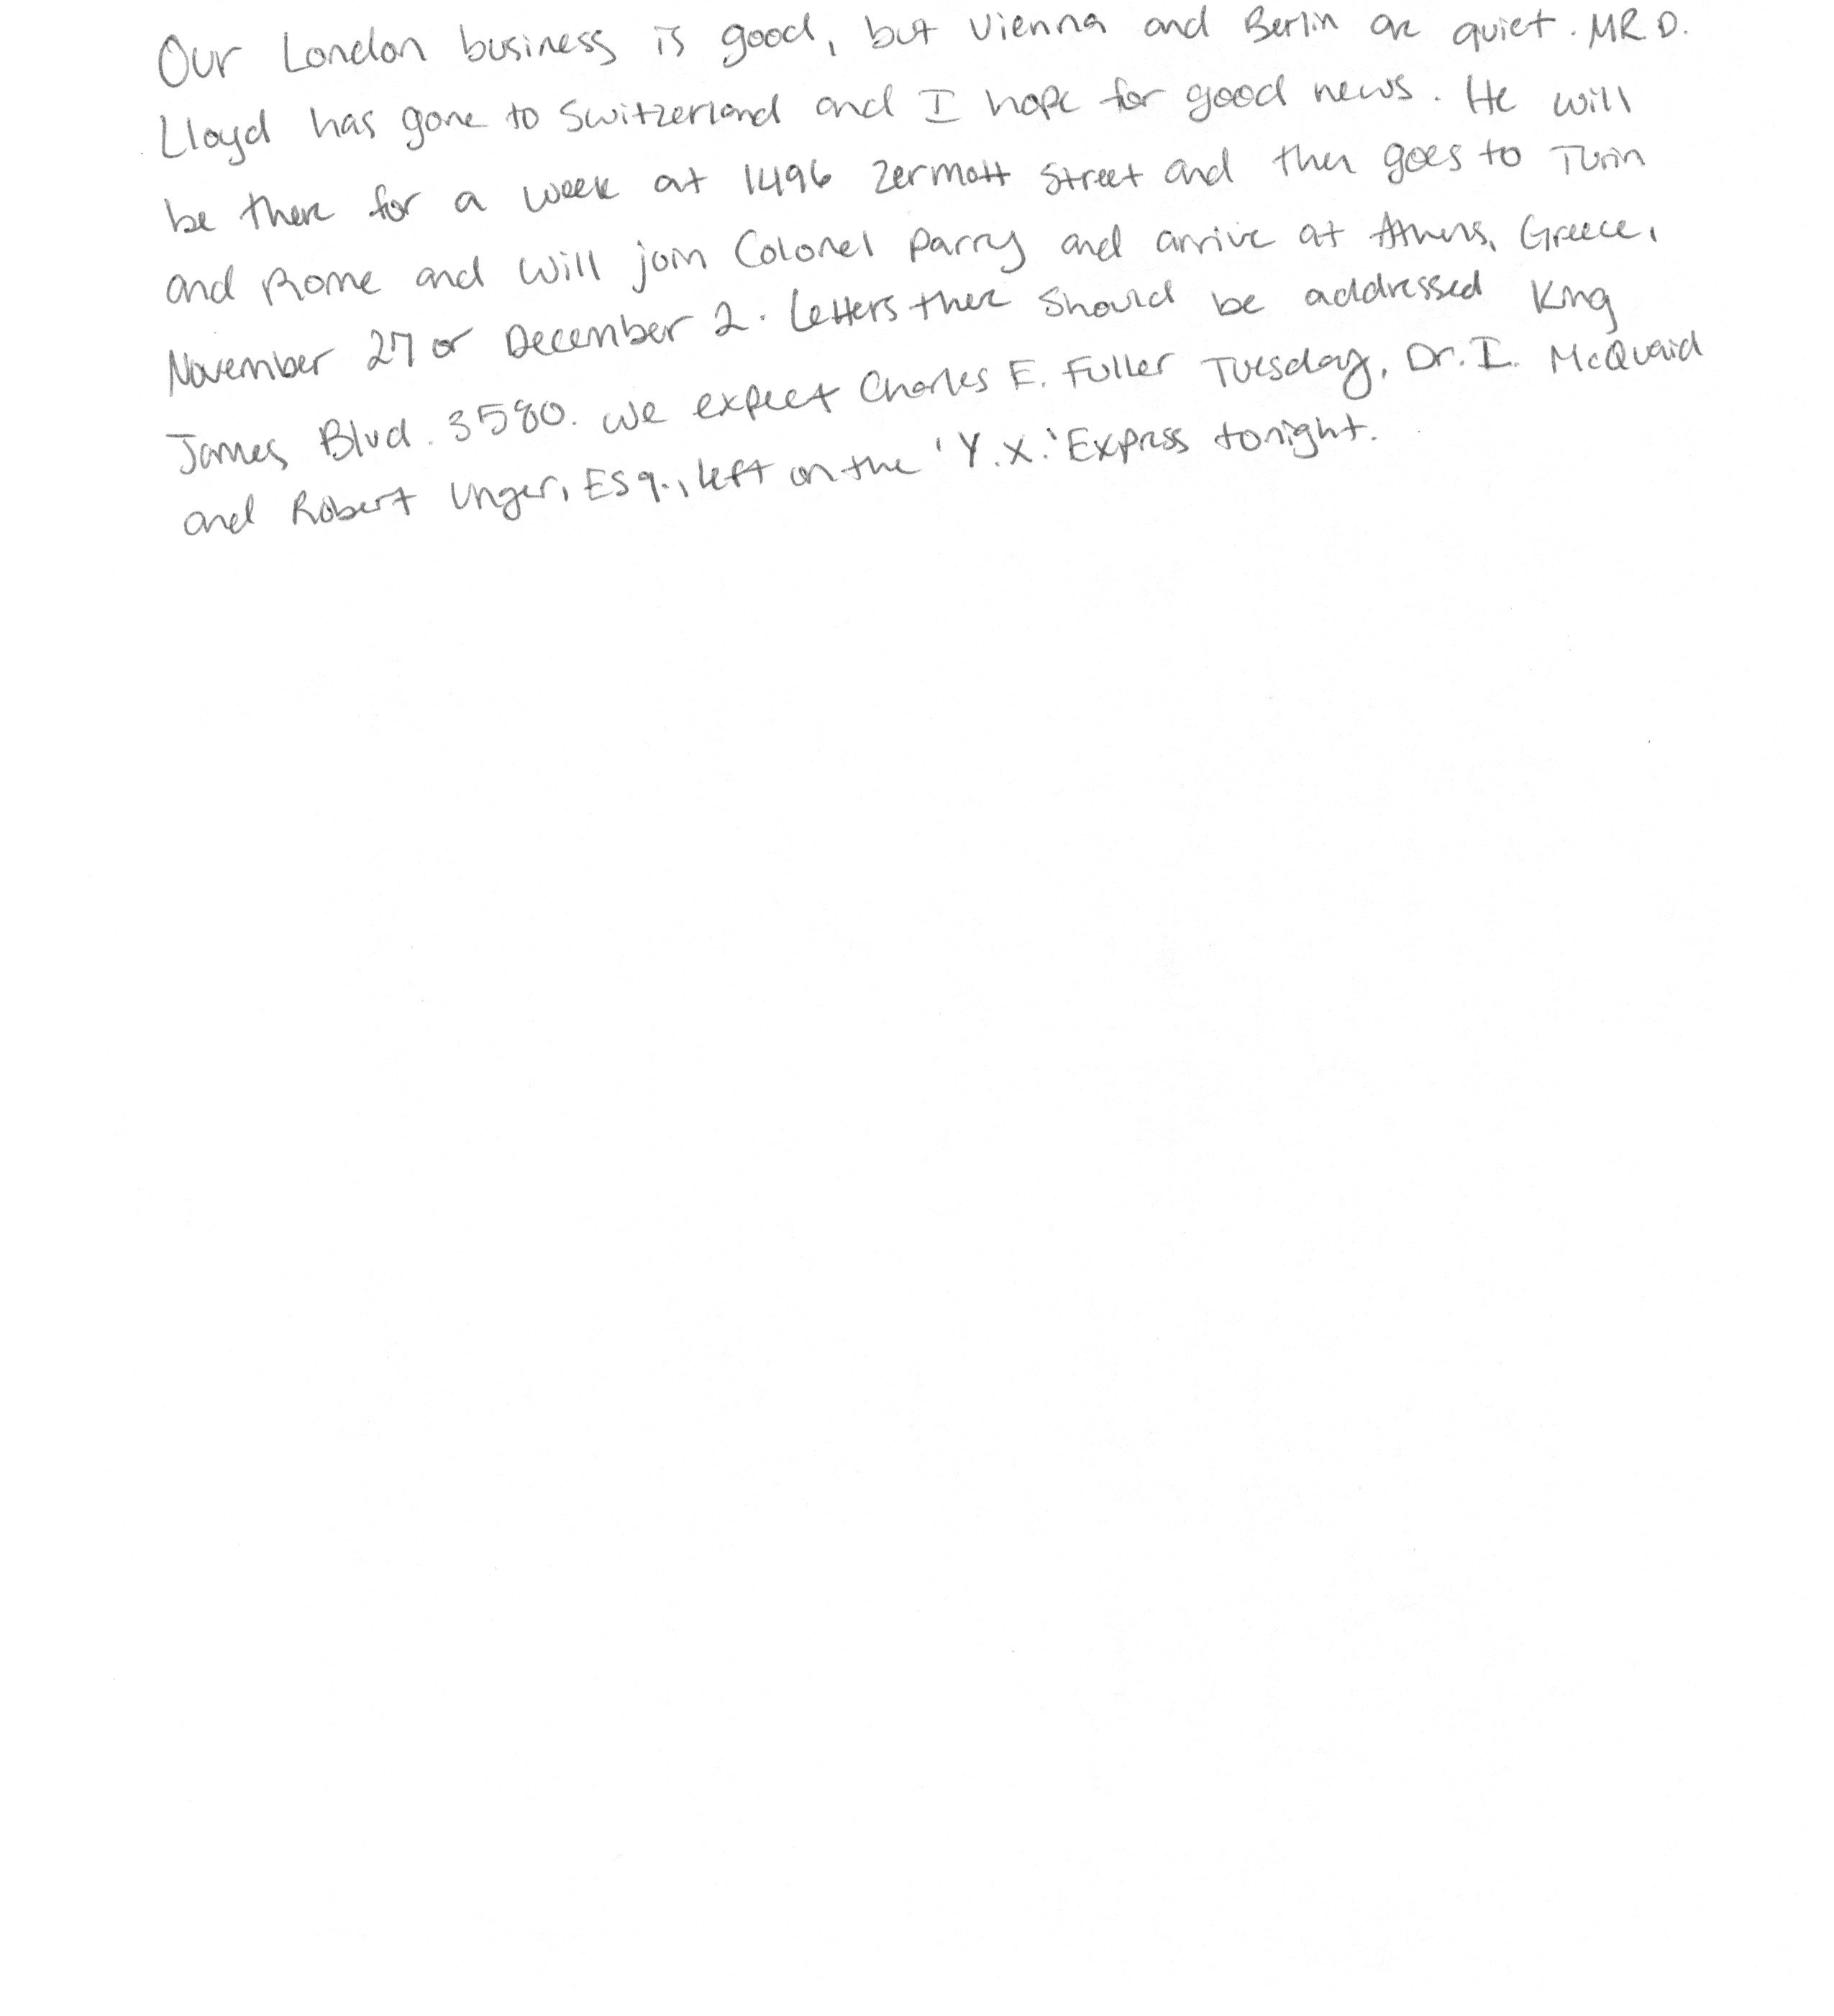 Our London business is good, but Vienna and Berlin are quiet. MR. D.
Lloyd has gone to Switzerland and I hope for good news. He will
be there for a week at 1496 Zermott Street and then goes to Turin
and Rome and will join Colonel Parry and arrive at Athens, Greece,
November 27 or December 2. Letters there should be addressed King
James Blvd. 3580. We expect Charles E. Fuller Tuesday, Dr. L. McQuaid
and Robert Unger, Esq., left on the 'Y.X.' Express tonight.